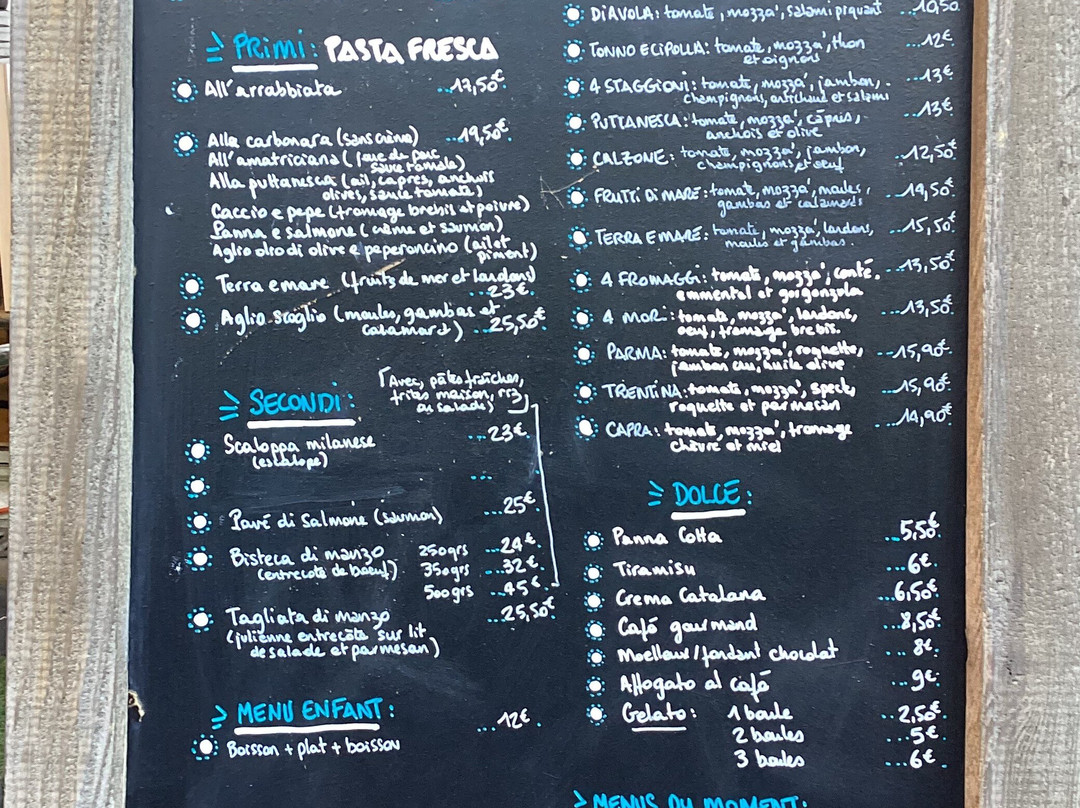 PRIMI: PASTA FRESCA
All'arrabbiata ...17,50€
Alla carbonara (sans crème) ...19,50€
All'amatriciana (joue de porc,
sauce tomate)
Alla puttanesca (ail, capres, anchois
olives, sauce tomate)
Caccio e pepe (fromage brebis et poivre)
Panna e salmone (crème et saumon)
Aglio olio di olive e peperoncino (ail et
piment)
Terra e mare (fruits de mer et lardons)
...23€.
Aglio scoglio (moules, gambas et
calamars) ...25,50€
SECONDI:
(Avec, pâtes fraîches,
frites maison, riz
ou salade)
Scaloppa milanese ...23€.
(escalope)
...
Pavé di Salmone (saumon) ...25€.
Bisteca di manzo 250grs ...24€.
(entrecote de boeuf) 350grs ...32€.
500grs ...45€.
Tagliata di manzo ...25,50€
(julienne entrecôte sur lit
de salade et parmesan)
MENU ENFANT: ...12€.
Boisson + plat + boisson
DIAVOLA: tomate, mozza', salami piquant ...10,50
TONNO E CIPOLLA: tomate, mozza', thon ...12€.
et oignons
4 STAGGIONI: tomate, mozza', jambon, ...13€
champignons, artichaud et salami
PUTTANESCA: tomate, mozza', câpris, ...13€.
anchois et olive
CALZONE: tomate, mozza', jambon, ...12,50€
champignons, et oeuf
FRUTTI DI MARE: tomate, mozza', moules, ...14,50€
gambas et calamards
TERRA E MARE: tomate, mozza', lardons, ...15,50€
moules et gambas.
4 FROMAGGI: tomate, mozza', comté, ...13,50€
emmental et gorgonzola
4 MORI: tomate, mozza', lardons, ...13,50€
oeuf, fromage brebis.
PARMA: tomate, mozza', roquette, ...15,90€
jambon cru, huile olive
TRENTINA: tomate, mozza', speck, ...15,90€
roquette et parmesan
CAPRA: tomate, mozza', fromage ...14,90€
chèvre et miel
DOLCE:
Panna Cotta ...5,50€
Tiramisu ...6€.
Crema Catalana ...6,50€
Café gourmand ...8,50€
Moelleux/fondant chocolat ...8€.
Affogato al café ...9€.
Gelato: 1 boule ...2,50€
2 boules ...5€
3 boules ...6€
MENUS DU MOMENT: